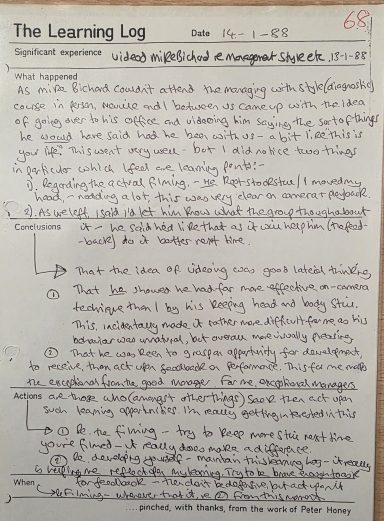 68
The Learning Log
Date 14-1-88
Significant experience videod Mike Bichard re management style etc. 13-1-88
What happened
As Mike Bichard couldn't attend the managing with style (diagnostic)
course in person, and I between us came up with the idea
of going over to his office and videoing him saying the sort of things
he would have said had he been with us - a bit like "this is
your life". This went very well - but I did notice two things
in particular which I feel are learning points:-
1). Regarding the actual filming. - He kept stock still / I moved my
head, - nodding a lot, this was very clear on camera + playback.
2). As we left, I said I'd let him know what the group thought about
it - he said he'd like that as it will help him (to feed-
-back) do it better next time.
Conclusions
That the idea of videoing was good lateral thinking,
① That he showed he had far more effective on-camera
technique than I by his keeping head and body still.
This, incidentally made it rather more difficult for me, as his
behaviour was unnatural, but overall more visually pleasing
② That he was keen to grasp an opportunity for development,
to receive, then act upon feedback on performance. This for me marks
the exceptional from the good manager. For me, exceptional managers
are those who (amongst other things) seek then act upon
such learning opportunities. I'm really getting interested in this
Actions
① Re the filming - try to keep more still next time
you're filmed - it really does make a difference.
② Re developing yourself - maintain this learning log - it really
is helping me reflect on my learning. Try to be brave enough to ask
for feedback - then don't be defensive, but act upon it
When
→ filming - whenever that is, ② From this moment.
....pinched, with thanks, from the work of Peter Honey